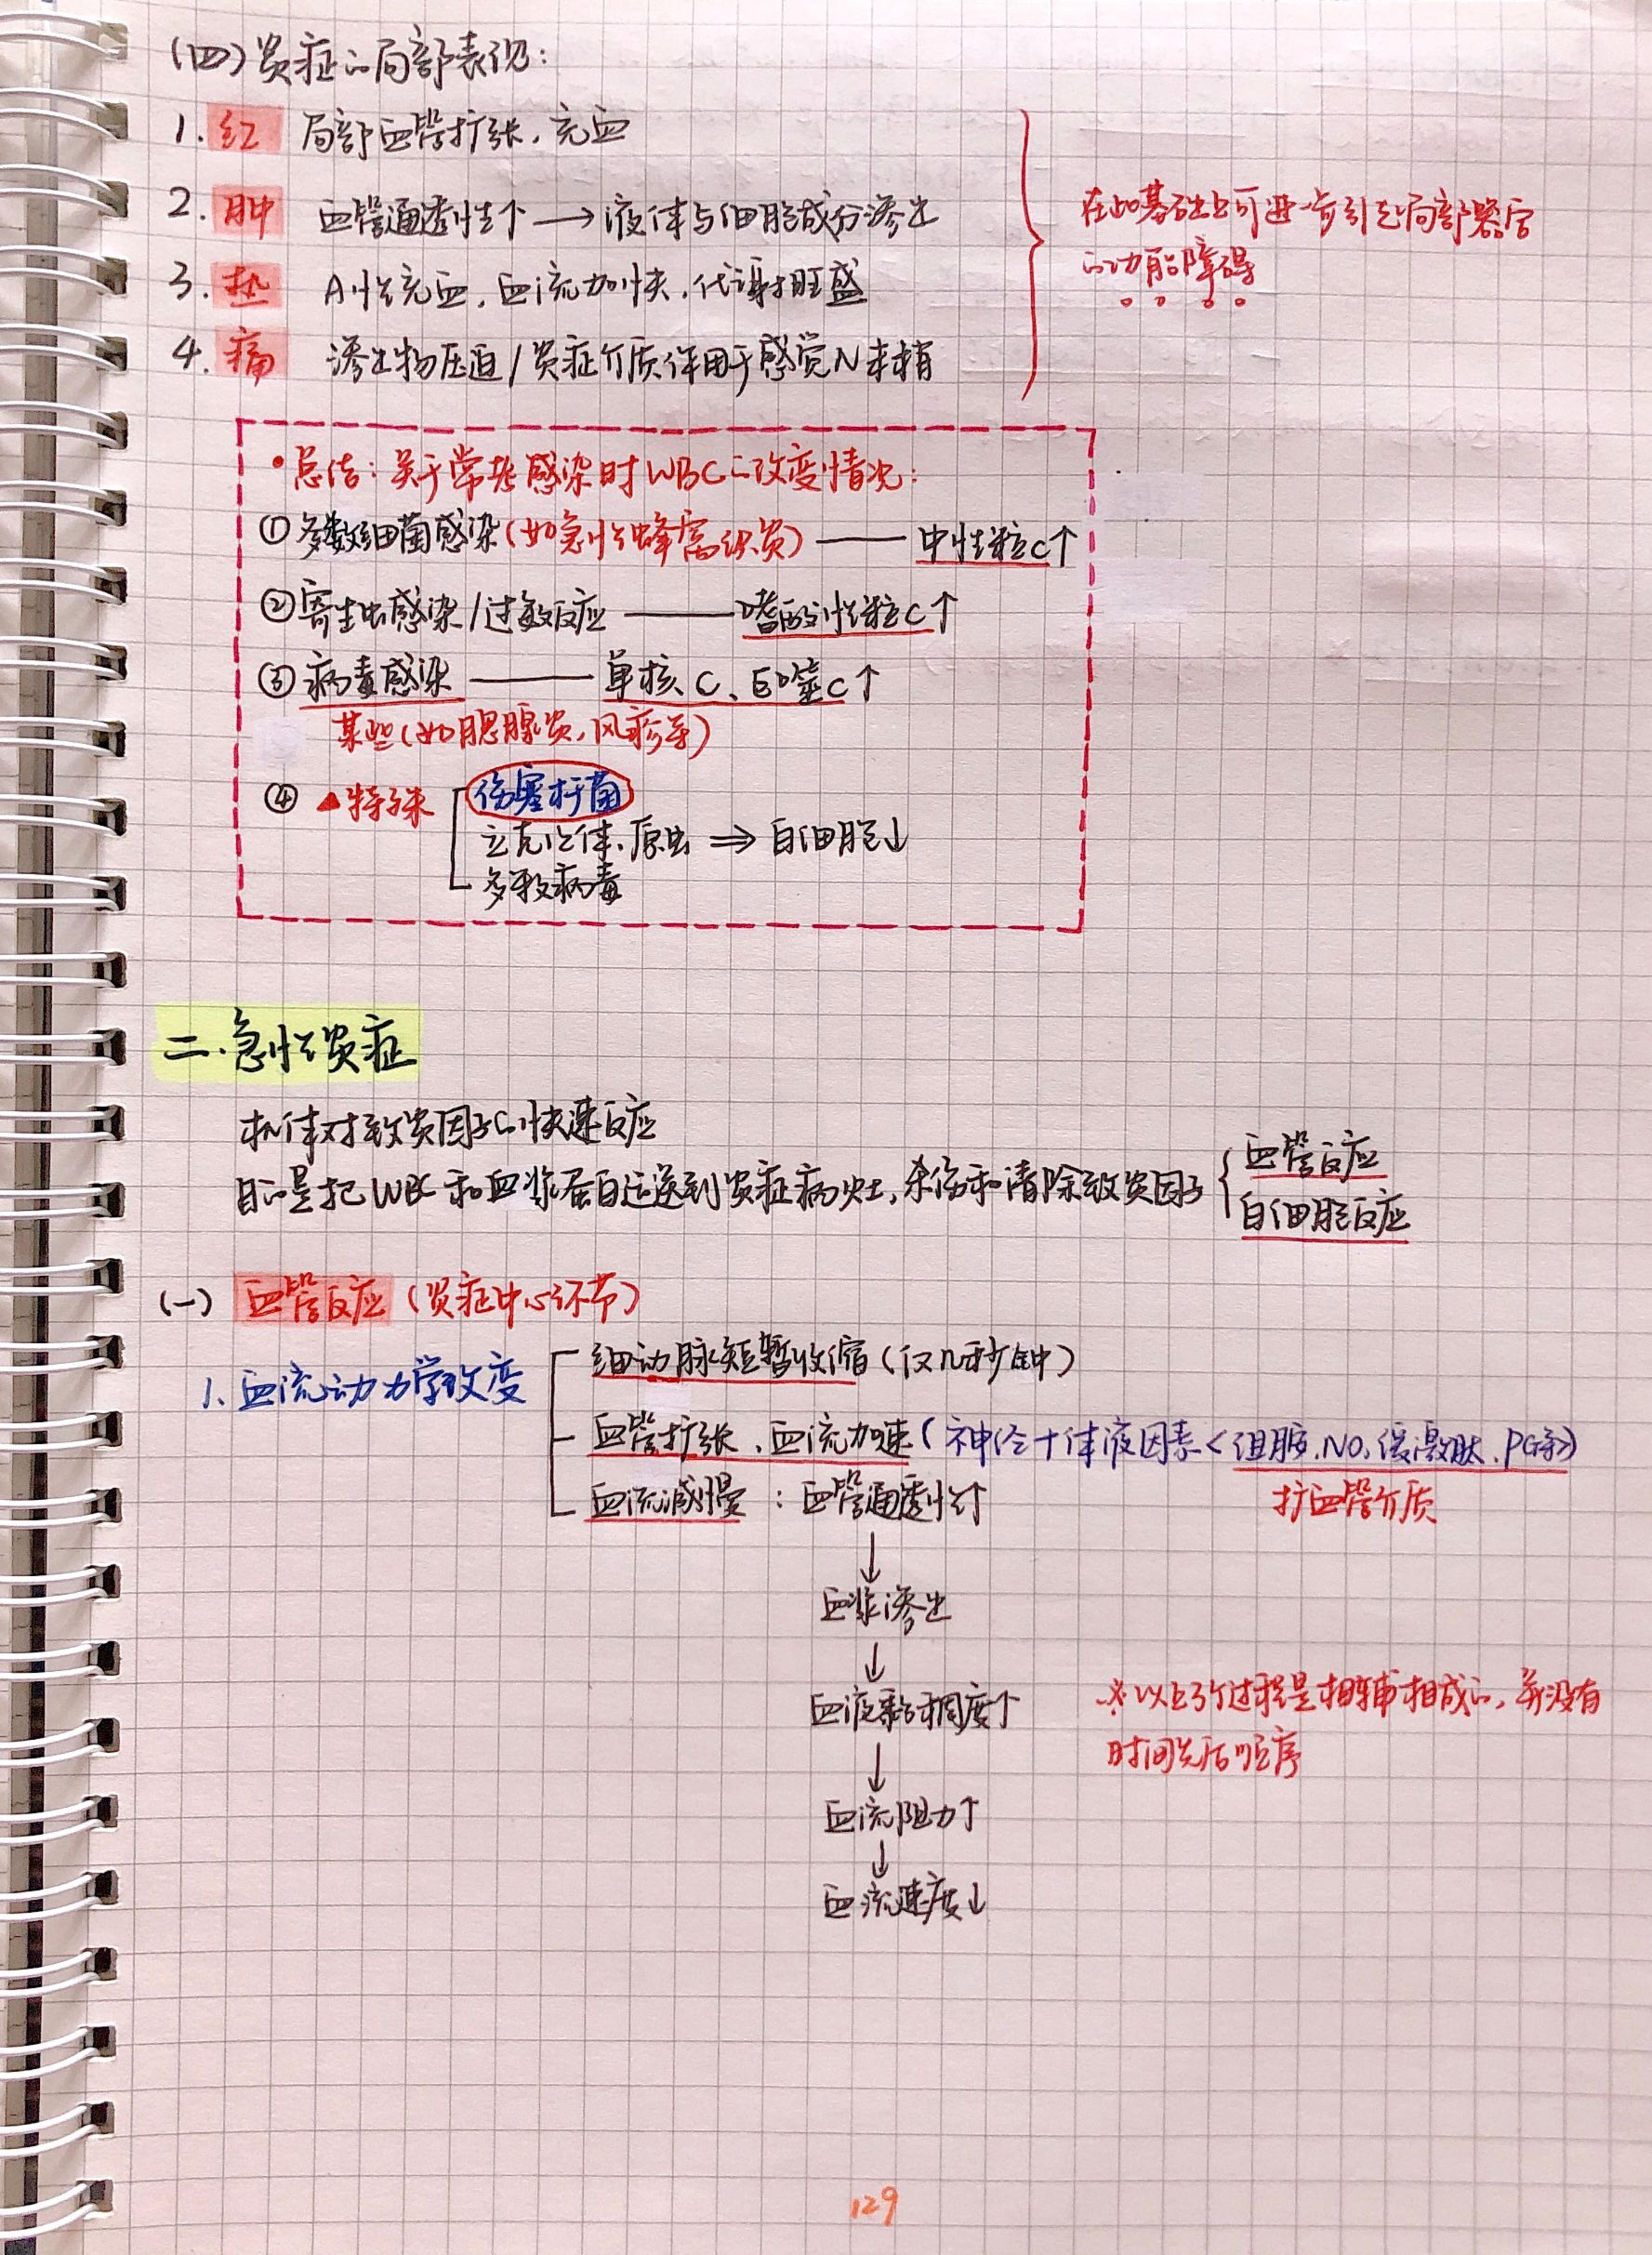 (四)炎症的局部表现:
1. 红 局部血管扩张.充血
2. 肿 血管通透性↑→液体与细胞成分渗出
3. 热 A性充血,血流加快,代谢旺盛
4. 痛 渗出物压迫/炎症介质作用于感觉N末梢
在此基础上可进一步引起局部器官
的功能障碍
•总结:关于常长感染时WBC的改变情况:
①多数细菌感染(如急性蜂窝织炎)——中性粒C↑
②寄生虫感染/过敏反应——嗜酸性粒C↑
③病毒感染——单核C、巨噬C↑
某些(如腮腺炎,风疹等)
④▲特殊 伤寒杆菌
立克次体.原虫 ⇒ 白细胞↓
多数病毒
二.急性炎症
机体对致炎因子的快速反应
目的是把WBC和血浆蛋白运送到炎症病灶,杀伤和清除致炎因子 血管反应
白细胞反应
(一) 血管反应(炎症中心环节)
1.血流动力学改变 细动脉短暂收缩(仅几秒钟)
血管扩张、血流加速(神经+体液因素<组胺.NO,缓激肽.PG等>)
血流减慢:血管通透性↑ 扩血管介质
↓
血浆渗出
↓
血液黏稠度↑ ※以上3个过程是相辅相成的,并没有
时间先后顺序
↓
血流阻力↑
↓
血流速度↓
129